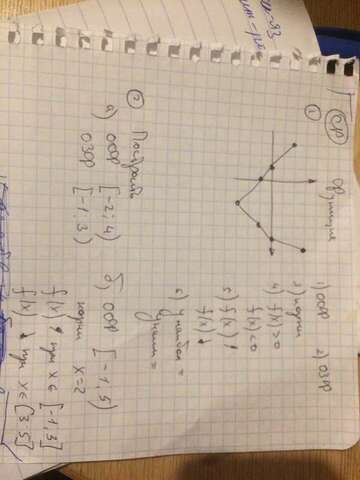 СР
Функция
①
1) ООФ 2) ОЗФ
3) корни
4) f(x) > 0
f(x) < 0
5) f(x) ↑
f(x) ↓
6) y наибол =
y наим =
② Построить
а) ООФ [-2; 4)
ОЗФ [-1, 3)
б) ООФ [-1, 5)
корни x=2
f(x) ↑ при x ∈ [-1, 3]
f(x) ↓ при x ∈ [3 5]